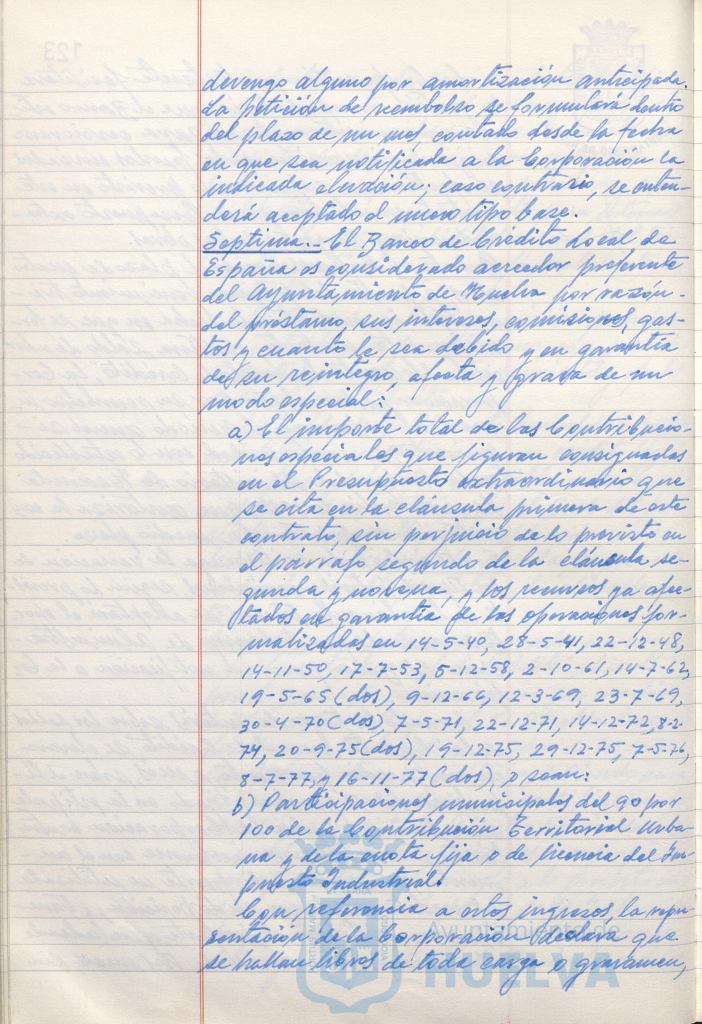 devengo alguno por amortización anticipada.
La petición de reembolso se formulará dentro
del plazo de un mes, contado desde la fecha
en que sea notificada a la Corporación la
indicada elevación; caso contrario, se enten-
derá aceptado el nuevo tipo base.
Septima.- El Banco de Crédito Local de
España es considerado acreedor preferente
del Ayuntamiento de Huelva por razón-
del préstamo, sus intereses, comisiones, gas-
tos y cuanto le sea debido y en garantía
de su reintegro, afecta y grava de un
modo especial:
a) El importe total de las Contribucio-
nes especiales que figuran consignadas
en el Presupuesto extraordinario que
se cita en la cláusula primera de este
contrato, sin perjuicio de lo previsto en
el párrafo segundo de la cláusula se-
gunda y novena, y los recursos ya afec-
tados en garantía de las operaciones for-
malizadas en 14-5-40, 28-5-41, 22-12-48,
14-11-50, 17-7-53, 5-12-58, 2-10-61, 14-7-62,
19-5-65 (dos), 9-12-66, 12-3-69, 23-7-69,
30-4-70 (dos) 7-5-71, 22-12-71, 14-12-72, 8-2-
74, 20-9-75 (dos), 19-12-75, 29-12-75, 7-5-76,
8-7-77, y 16-11-77 (dos), o sean:
b) Participaciones municipales del 90 por
100 de la Contribución Territorial Urba-
na y de la cuota fija o de licencia del Im-
puesto Industrial.
Con referencia a estos ingresos, la repre-
sentación de la Corporación declara que
se hallan libres de toda carga o gravamen,
Ayuntamiento de
HUELVA